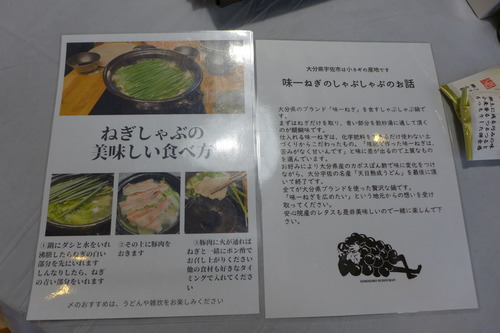 ねぎしゃぶの
美味しい食べ方
①鍋にダシと水をいれ
沸騰したらねぎの白い
部分を先にいれます
しんなりしたら、ねぎ
の青い部分をいれます
②その上に豚肉を
おきます
③豚肉に火が通れば
ねぎと一緒にポン酢で
お召し上がりください
他の食材も好きなタイ
ミングで入れてくださ
い
〆のおすすめは、うどんや雑炊をお楽しみください
大分県宇佐市は小ネギの産地です
味一ねぎのしゃぶしゃぶのお話
大分県のブランド「味一ねぎ」を食すしゃぶしゃぶ鍋です。
まずはねぎだけを取り、青い部分を数秒湯に通して頂く
のが醍醐味です。
仕入れる味一ねぎは、化学肥料を
だけ使わない土
づくりからこだわったもの。
作った味一ねぎは、
苦みがなく甘いんです」と味に差が出るので上質なもの
を選んでいます。
お好みにより大分県産のカボスぽん酢で味に変化をつけ
ながら、大分宇佐の名産「天日熟成うどん」を最後に頂
いて終了です。
全てが大分県ブランドを使った贅沢な鍋です。
「味一ねぎを広めたい」という地元からの想いを受け
取ってください。
安心院産のレタスも是非美味しいので一緒に楽しんで下
さい。